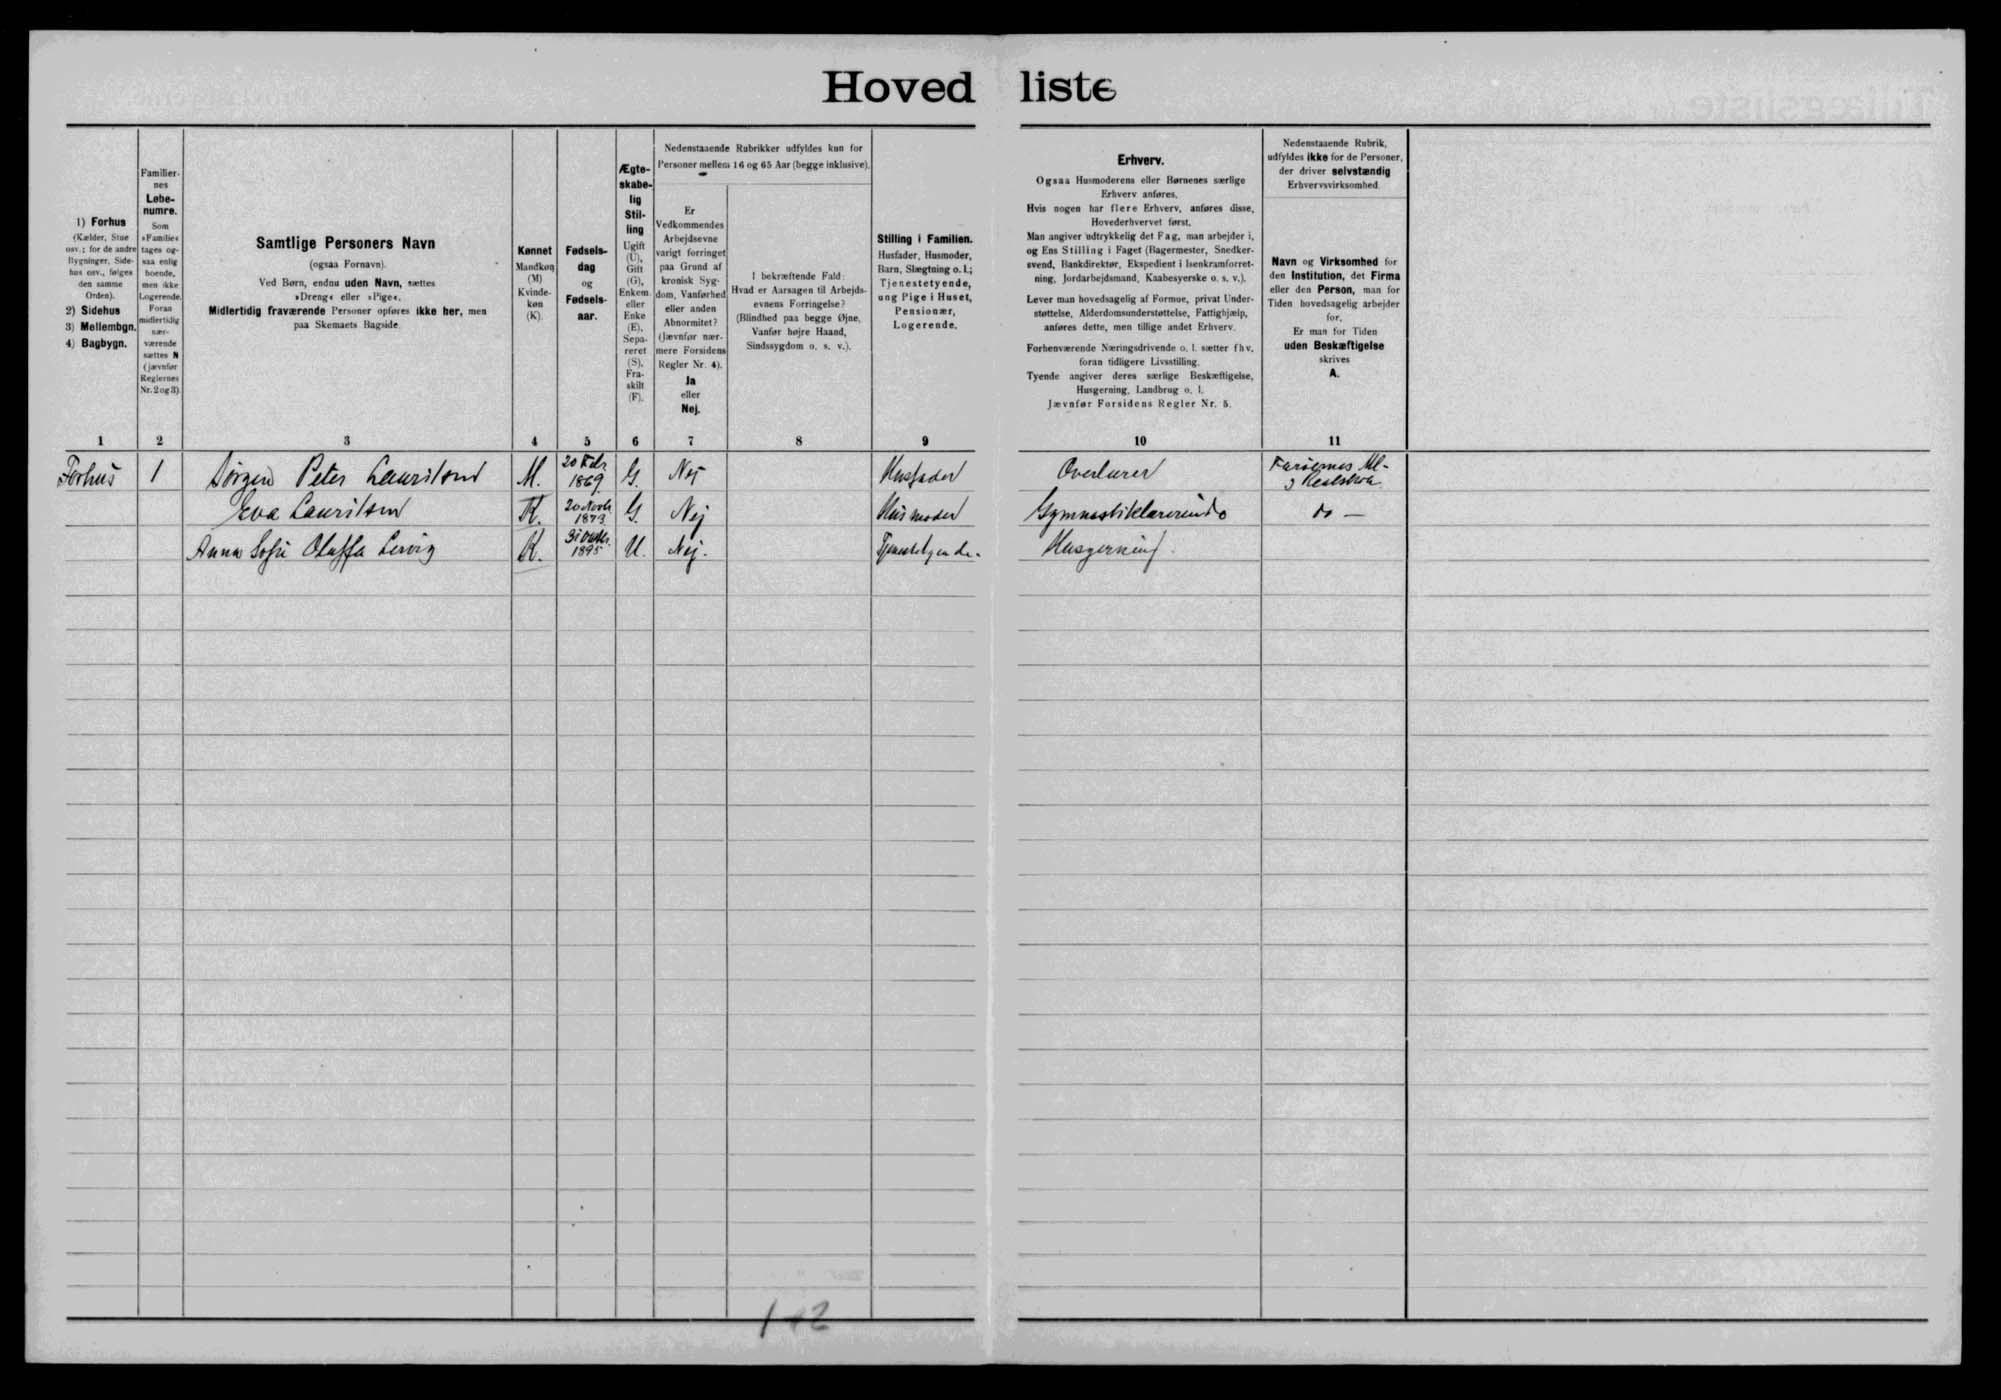 Hovedliste
1) Forhus
(Kælder, Stue
osv.; for de andre
Bygninger, Side-
hus osv., følges
den samme
Orden).
2) Sidehus
3) Mellembgn.
4) Bagbygn.
1
Familier-
nes
Løbe-
numre.
Som
»Familie«
tages og-
saa enlig
boende,
men ikke
Logerende.
Foran
midlertidig
nær-
værende
sættes N
(jævnfør
Reglernes
Nr. 2 og 3).
2
Samtlige Personers Navn
(ogsaa Fornavn).
Ved Børn, endnu uden Navn, sættes
»Dreng« eller »Pige«.
Midlertidig fraværende Personer opføres ikke her, men
paa Skemaets Bagside.
3
Kønnet
Mandkøn
(M)
Kvinde-
køn
(K).
4
Fødsels-
dag
og
Fødsels-
aar.
5
Ægte-
skabe-
lig
Stil-
ling
Ugift
(U),
Gift
(G),
Enkem.
eller
Enke
(E),
Sepa-
reret
(S),
Fra-
skilt
(F).
6
Nedenstaaende Rubrikker udfyldes kun for
Personer mellem 16 og 65 Aar (begge inklusive).
Er
Vedkommendes
Arbejdsevne
varigt forringet
paa Grund af
kronisk Syg-
dom, Vanførhed
eller anden
Abnormitet?
(Jævnfør nær-
mere Forsidens
Regler Nr. 4).
Ja
eller
Nej.
7
I bekræftende Fald:
Hvad er Aarsagen til Arbejds-
evnens Forringelse?
(Blindhed paa begge Øjne,
Vanfør højre Haand,
Sindssygdom o. s. v.).
8
Stilling i Familien.
Husfader, Husmoder,
Barn, Slægtning o. l.;
Tjenestetyende,
ung Pige i Huset,
Pensionær,
Logerende.
9
Erhverv.
Ogsaa Husmoderens eller Børnenes særlige
Erhverv anføres.
Hvis nogen har flere Erhverv, anføres disse,
Hovederhvervet først.
Man angiver udtrykkelig det Fag, man arbejder i,
og Ens Stilling i Faget (Bagermester, Snedker-
svend, Bankdirektør, Ekspedient i Isenkramforret-
ning, Jordarbejdsmand, Kaabesyerske o. s. v.).
Lever man hovedsagelig af Formue, privat Under-
støttelse, Alderdomsunderstøttelse, Fattighjælp,
anføres dette, men tillige andet Erhverv.
Forhenværende Næringsdrivende o. l. sætter fhv.
foran tidligere Livsstilling.
Tyende angiver deres særlige Beskæftigelse,
Husgerning, Landbrug o. l.
Jævnfør Forsidens Regler Nr. 5.
10
Nedenstaaende Rubrik,
udfyldes ikke for de Personer,
der driver selvstændig
Erhvervsvirksomhed.
Navn og Virksomhed for
den Institution, det Firma
eller den Person, man for
Tiden hovedsagelig arbejder
for.
Er man for Tiden
uden Beskæftigelse
skrives
A.
11
Forhus 1 Jørgen Peter Lauritsen M. 20 Febr 1869 G. Nej Husfader Overlærer Færøernes Ml- og Realskole
Eva Lauritsen K. 20 Novb 1873 G. Nej Husmoder Gymnastiklærerinde do —
Anna Sofie Oluffa K. 31 1895 U. Nej. Tjenestetyende. Husgerning.